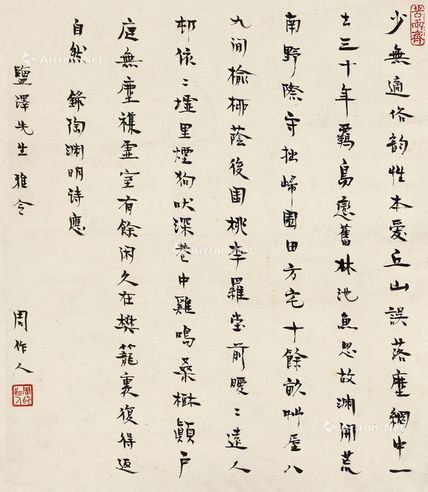 苦雨齋
少無適俗韵性本愛丘山誤落塵網中一
去三十年羈鳥戀舊林池魚思故淵開荒
南野際守拙歸園田方宅十餘畝艸屋八
九間榆柳蔭後園桃李羅堂前曖〻遠人
邨依〻墟里煙狗吠深巷中雞鳴桑樹顛戶
庭無塵雜虛室有餘閑久在樊籠裏復得返
自然 錄陶淵明詩應
鹽澤先生雅令
周作人